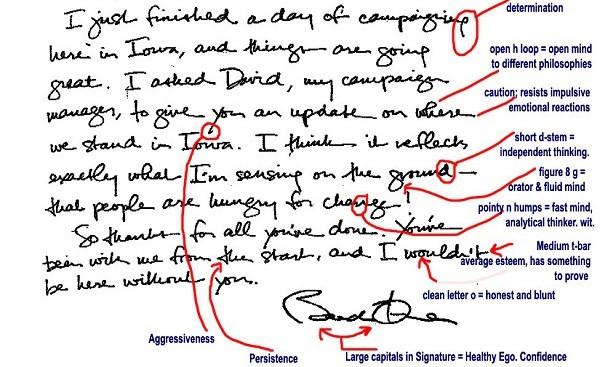 I just finished a day of campaigning
here in Iowa, and things are going
great. I asked David, my campaign
manager, to give you an update on where
we stand in Iowa. I think it reflects
exactly what I'm sensing on the ground —
that people are hungry for change!
So thanks for all you've done. You've
been with me from the start, and I wouldn't
be here without you.
determination
open h loop = open mind
to different philosophies
caution; resists impulsive
emotional reactions
short d-stem =
independent thinking.
figure 8 g =
orator & fluid mind
pointy n humps = fast mind,
analytical thinker. wit.
Medium t-bar
average esteem, has something
to prove
clean letter o = honest and blunt
Aggressiveness
Persistence
Large capitals in Signature = Healthy Ego. Confidence